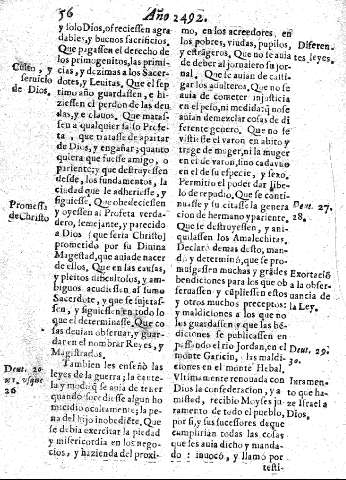 56 Año 2492.
y solo Dios, ofreciessen agra
dables, y buenos sacrificios,
Que pagassen el derecho de
los primogenitos, las primi-
cias, y dezimas a los Sacer-
dotes, y Leuitas, Que el sep
timo año guardassen, e hi-
ziessen el perdon de las deu
das, y esclauos. Que matas-
sen a qualquier falso Profe-
ta, que tratasse de apartar
de Dios, y engañar; quanto
quiera que fuesse amigo, o
pariente; y que destruyessen
desde, los fundamentos, la
ciudad que le adheriesse, y
siguiesse. Que obedeciessen
y oyessen al Profeta verda-
dero, semejante, y parecido
a Dios (que seria Christo)
prometido por su Diuina
Magestad, que auia de nacer
de ellos, Que en las causas,
y pleitos dificultosos, y am-
biguos acudiessen al sumo
Sacerdote, y que se sujetas-
sen, y siguiessen en todo lo
que el determinasse. Que co
sas deuian obseruar, y guar-
dar en nombrar Reyes, y
Magistrados.
Tambien les enseño las
leyes de la guerra; la cante-
la y modo, q̃ se auia de tener
quando sucediesse algun ho
micidio oculramente; la pe-
na del hijo inobediẽte, Que
se deuia exercitar la piedad
y misericordia en los nego-
cios, y hazienda del proxi-
Culto, y
seruicio
de Dios.
Promessa
de Christo
Deut. 20
usque
26
mo, en los acreedores, en
los pobres, viudas, pupilos,
y estrãgeros, Que no se auia
de deber al jornalero su jor-
nal, Que se auian de casti-
gar los adulteros, Que no se
auia de cometer injusticia
en el peso, ni medida; q̃ nose
auian de mezclar cosas de di
ferente genero. Que no se
vistiesse el varon en abito y
trage de muger, ni la muger
en el de varon, sino cada vno
en el de su especie, y sexo.
Permitio el poder dar libe-
lo de repudio. Que se conti-
nuasse y su citasse la genera
cion de hermano y pariente.
Que se destruyessen, y ani-
quilassen los Amalechitas.
Declaro demas desto, man-
do y determinò, que se pro-
mulgassen muchas y grãdes
bendiciones para los que ob
seruassen y cũpliessen estos
y otros muchos preceptos:
y maldiciones a los que no
les guardassen y que las bẽ-
diciones se publicassen en
passando el rio Jordan, en el
monte Garicin, las maldi-
ciones en el monte Hebal.
Vltimamente renouada con
Dios la confederacion, y a-
misted, recibio Moyses ju-
ramento de todo el pueblo,
por si, y sus sucessores de que
cumplirian todas las cosas
que les auia dicho y manda-
do: inuocò, y llamò por
testi-
Diferen
tes leyes.
Deut. 27.
28.
Exortaciõ
a la obser
uancia de
la Ley.
Deut. 29.
30.
Iuramen-
to que ha-
ze Israel a
Dios,